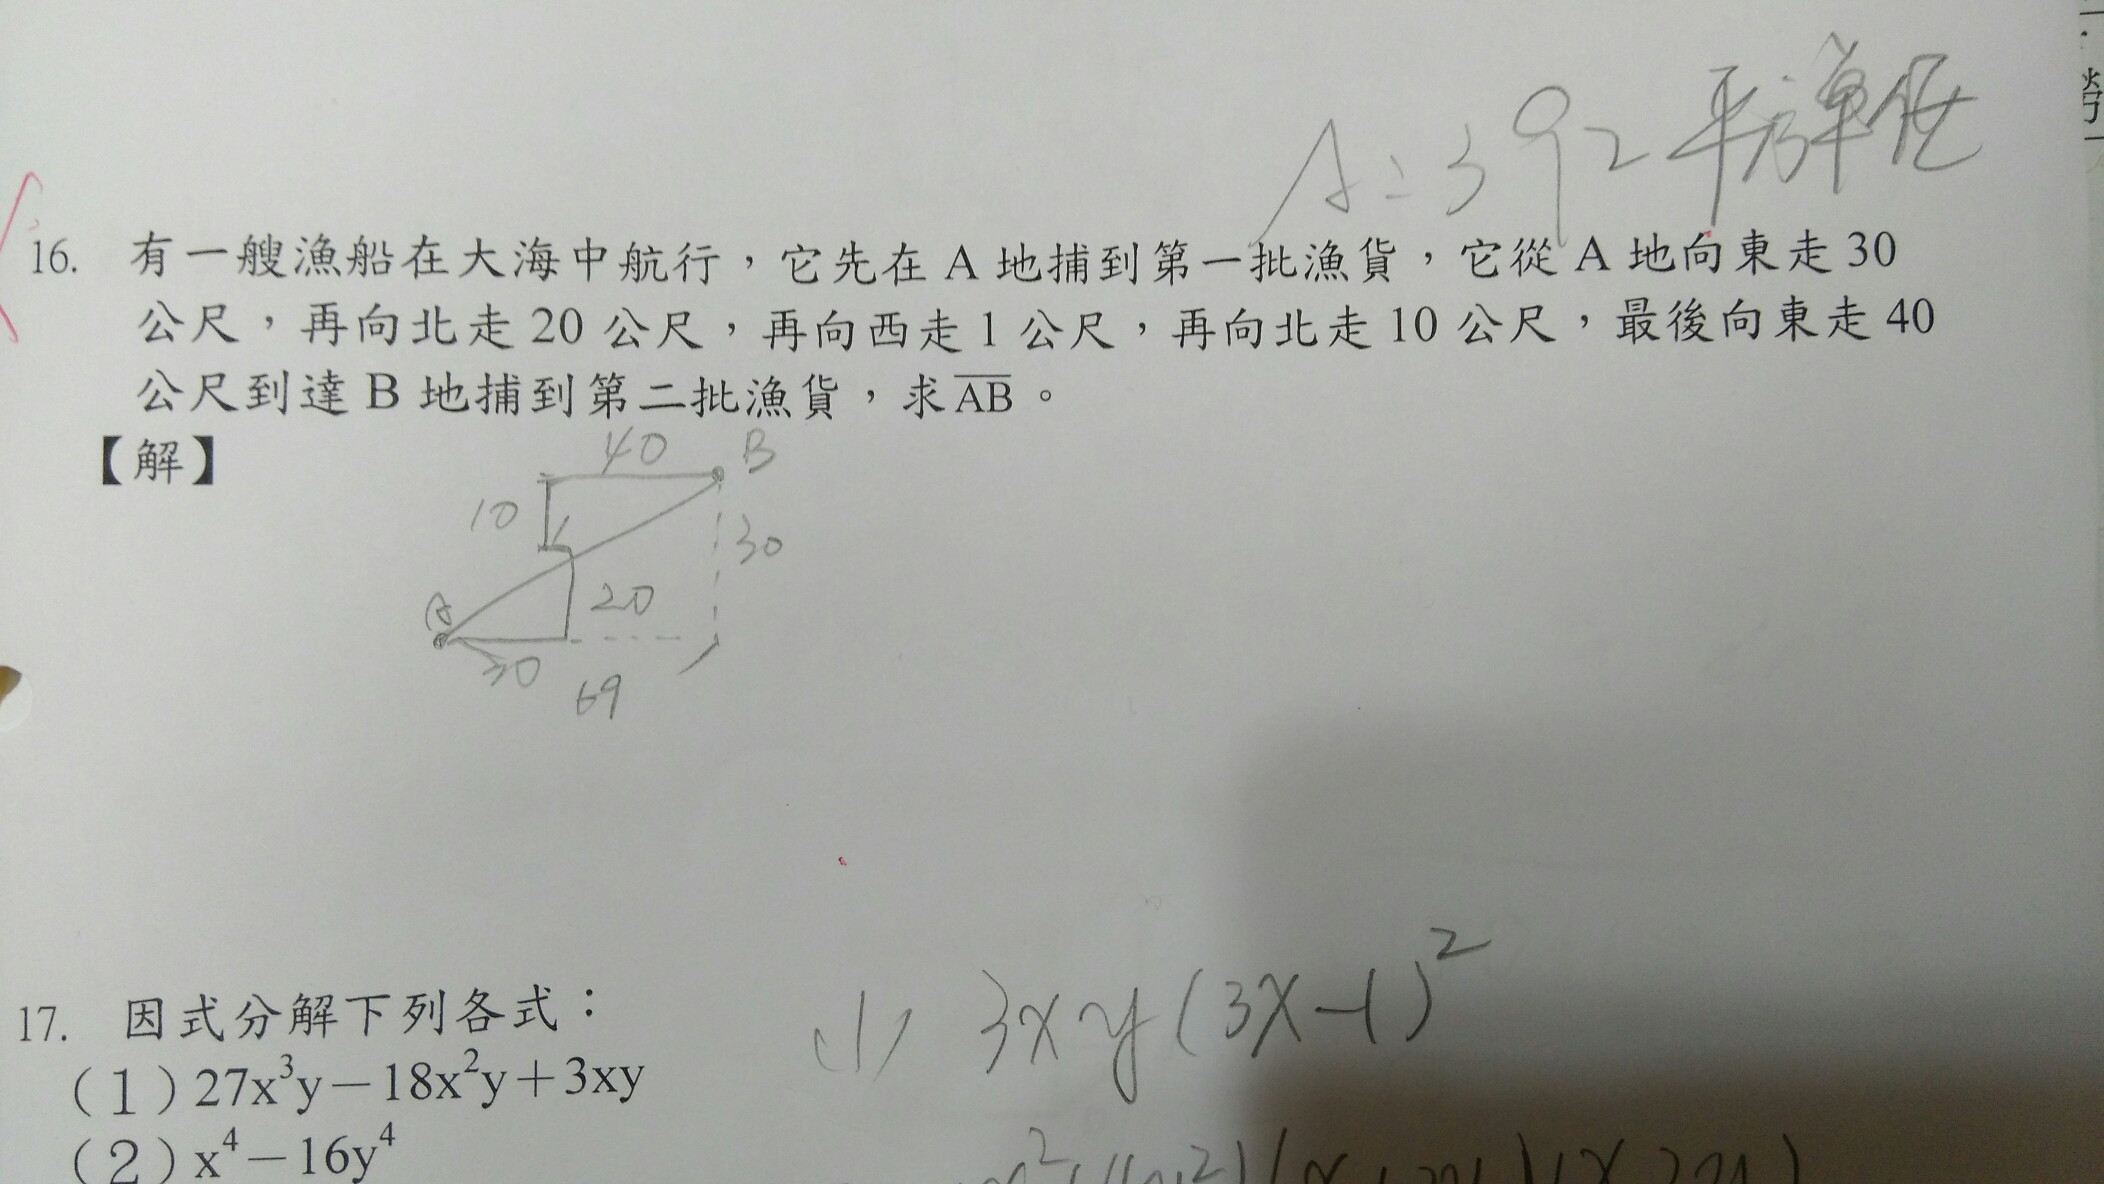 A=392平方單位
16. 有一艘漁船在大海中航行，它先在 A 地捕到第一批漁貨，它從 A 地向東走 30
公尺，再向北走 20 公尺，再向西走 1 公尺，再向北走 10 公尺，最後向東走 40
公尺到達 B 地捕到第二批漁貨，求 AB。
【解】
40 B
10 1 30
A 20
30
69
17. 因式分解下列各式：
(1) 3xy(3x-1)²
(1) 27x³y－18x²y＋3xy
(2) x⁴－16y⁴